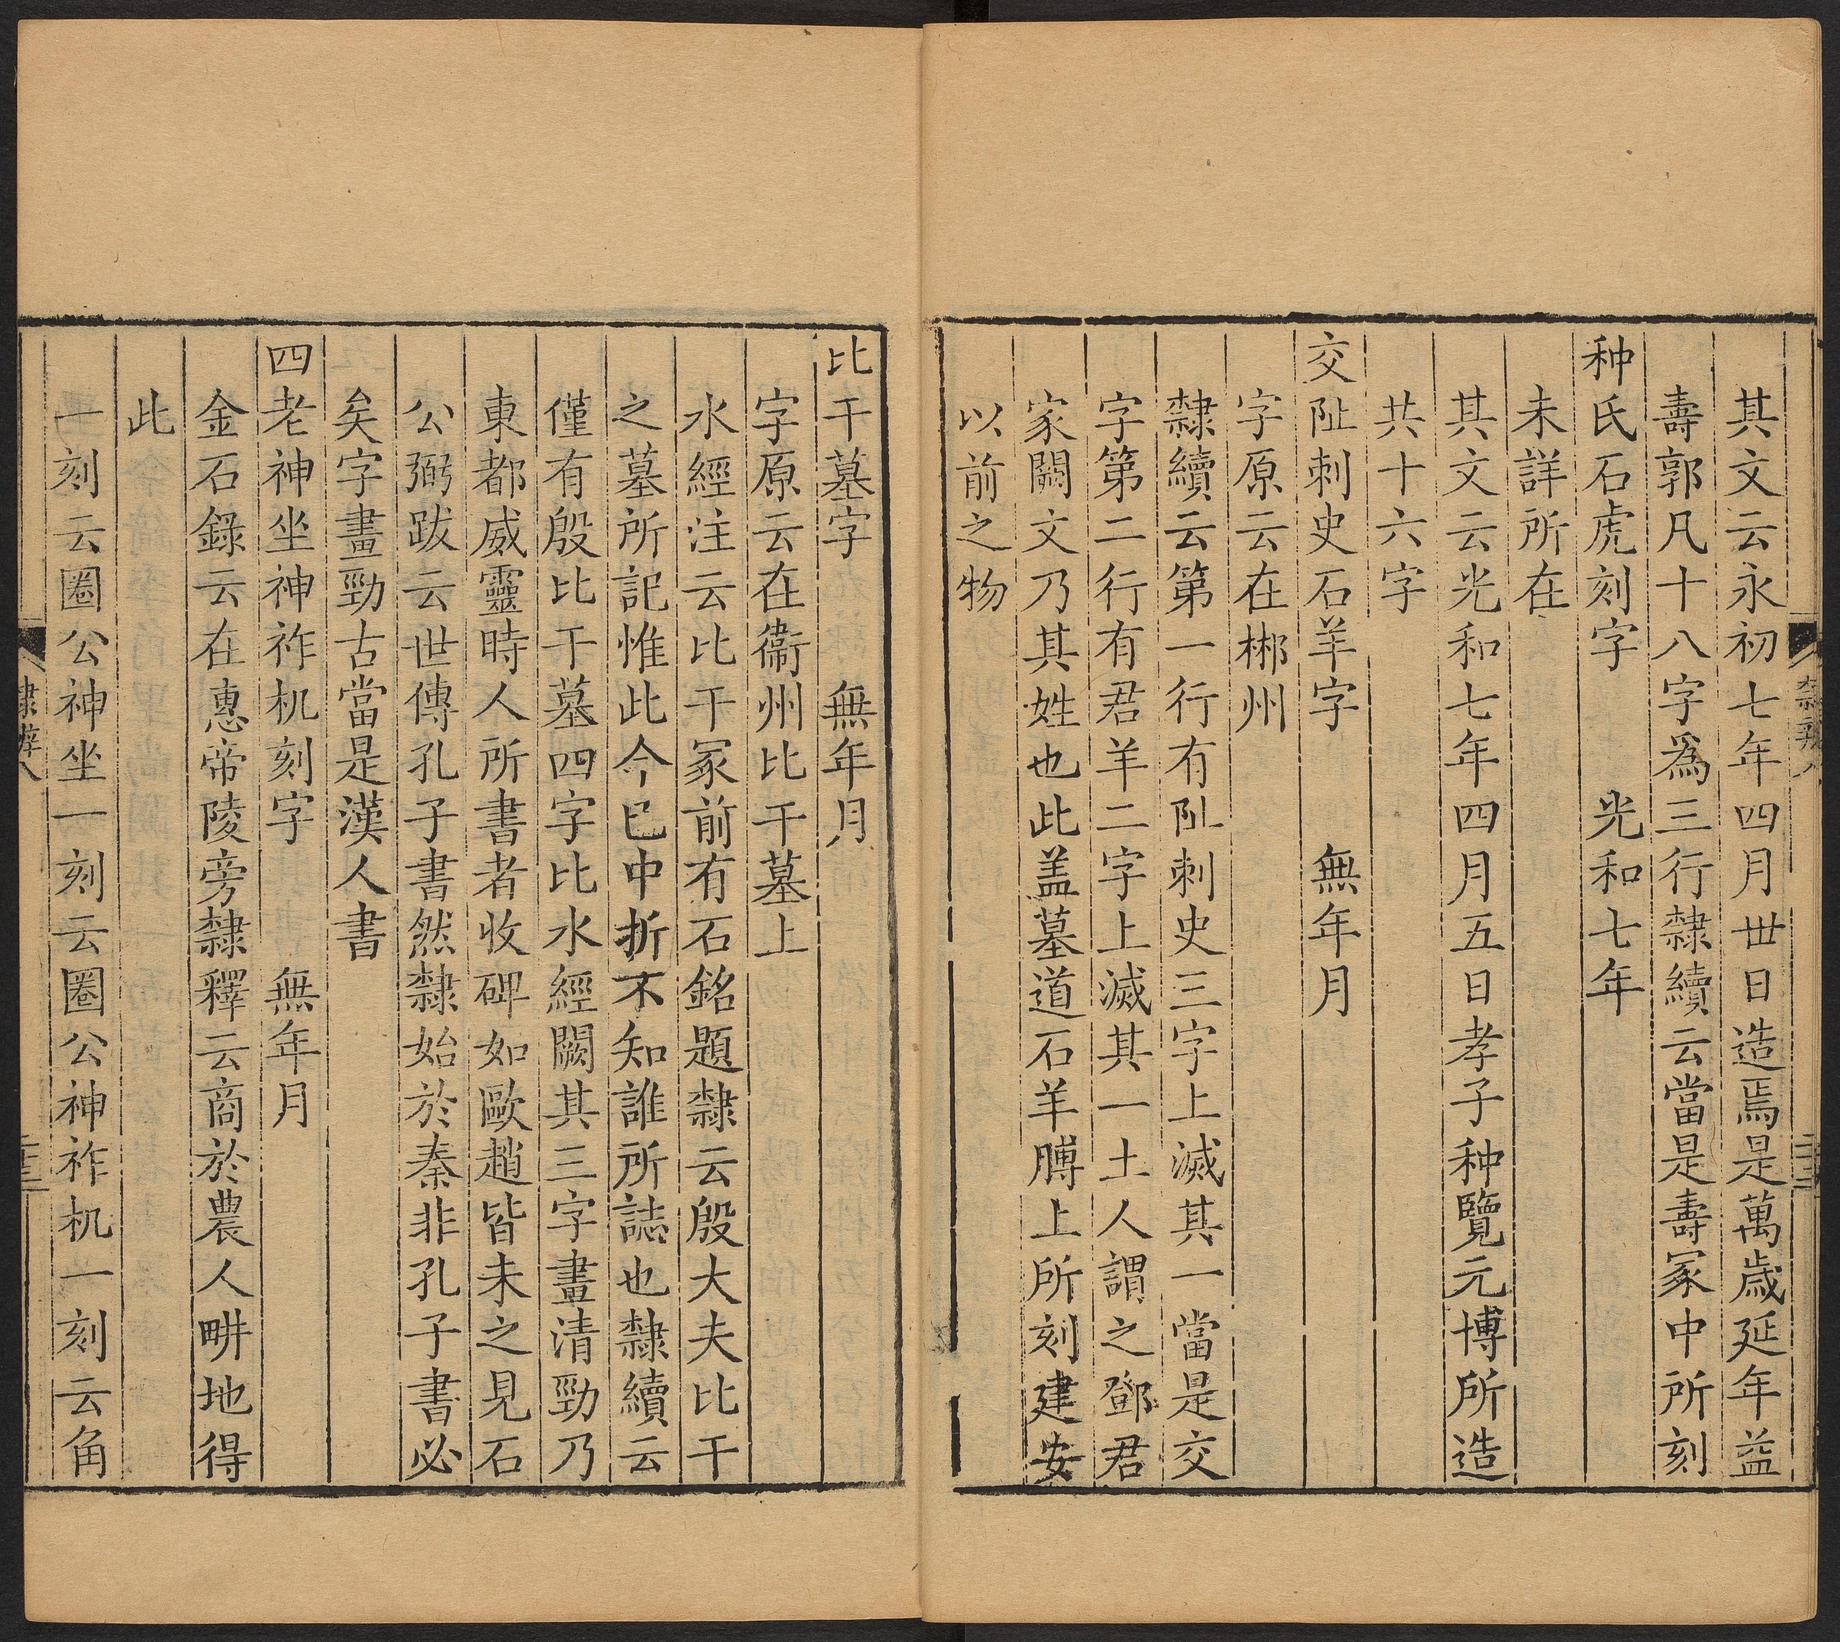 其文云永初七年四月丗日造焉是萬歲延年益
壽郭凡十八字爲三行隸續云當是壽冢中所刻
种氏石虎刻字　光和七年
未詳所在
其文云光和七年四月五日孝子种覽元博所造
共十六字
交阯刺史石羊字　無年月
字原云在郴州
隸續云第一行有阯刺史三字上滅其一當是交
字第二行有君羊二字上滅其一土人謂之鄧君
冢闕文乃其姓也此盖墓道石羊膊上所刻建安
以前之物
比干墓字　無年月
字原云在衞州比干墓上
水經注云比干冢前有石銘題隸云殷大夫比干
之墓所記惟此今已中折不知誰所誌也隸續云
僅有殷比干墓四字比水經闕其三字畫清勁乃
東都威靈時人所書者收碑如歐趙皆未之見石
公弼跋云世傳孔子書然隸始於秦非孔子書必
矣字畫勁古當是漢人書
四老神坐神祚机刻字　無年月
金石錄云在惠帝陵旁隸釋云商於農人畊地得
此
一刻云圈公神坐一刻云圈公神祚机一刻云角
隸辨八